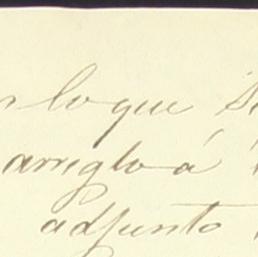 lo que
arreglo á
adjunto